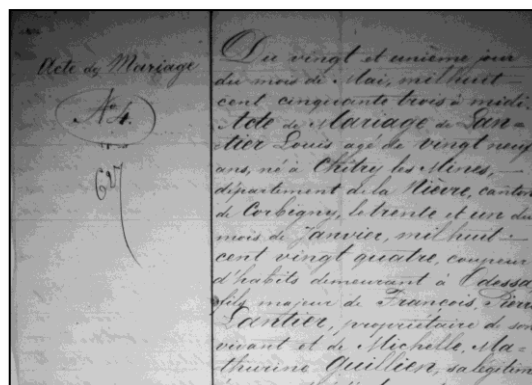 Acte de Mariage
N° 4.
Du vingt et unième jour
du mois de Mai, mil huit
cent cinquante trois à midi
Acte de Mariage de Lan-
tier Louis agé de vingt neuf
ans, né à Chitry les Mines,
département de la Nievre, canton
de Corbigny, le trente et un du
mois de Janvier, mil huit
cent vingt quatre, coupeur
d'habits demeurant à Odessa
fils majeur de François, Pierre
Lantier, propriétaire de son
vivant et de Michelle, Ma-
thurine Quillien, sa légitime